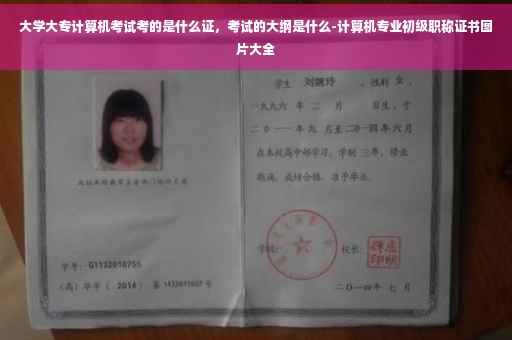 大学大专计算机考试考的是什么证，考试的大纲是什么-计算机专业初级职称证书图
片大全
学生 刘婉玲 ，性别 女 ，
一九九六 年 二 月 日生，于
二〇一一年 九 月至二〇一四年 六 月
在本校高中部学习，学制 三年，修业
期满，成绩合格，准予毕业。
学号：G1132010755
（高）毕字（ 2014 ）第 1432011027 号
学校：
校长：
二〇一四年 七 月